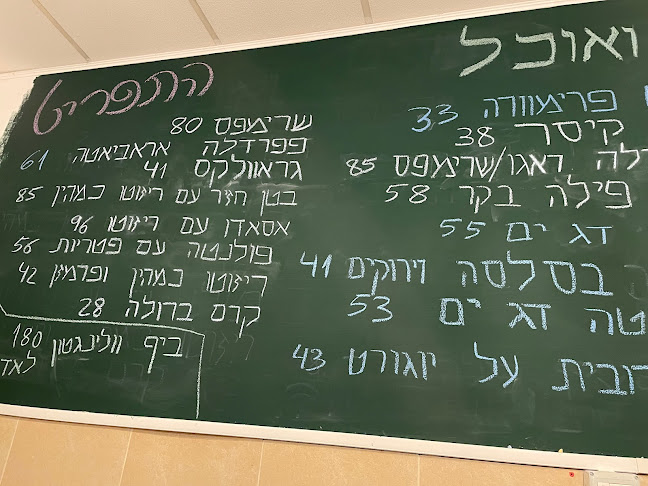 ואוכל
פרימוורה 33
קיסר 38
דלה ראגו/שרימפס 85
פילה בקר 58
דג ים 55
בסלסה וירוקים 41
טה דג ים 53
רובית על יוגורט 43
התפריט
שרימפס 80
פפרדלה אראביאטה 61
גראוולקס 41
בטן חזיר עם ריזוטו כמהין 85
אסאדו עם ריזוטו 96
פולנטה עם פטריות 56
ריזוטו כמהין ופרמזן 42
קרם ברולה 28
ביף וולינגטון 180
לאד